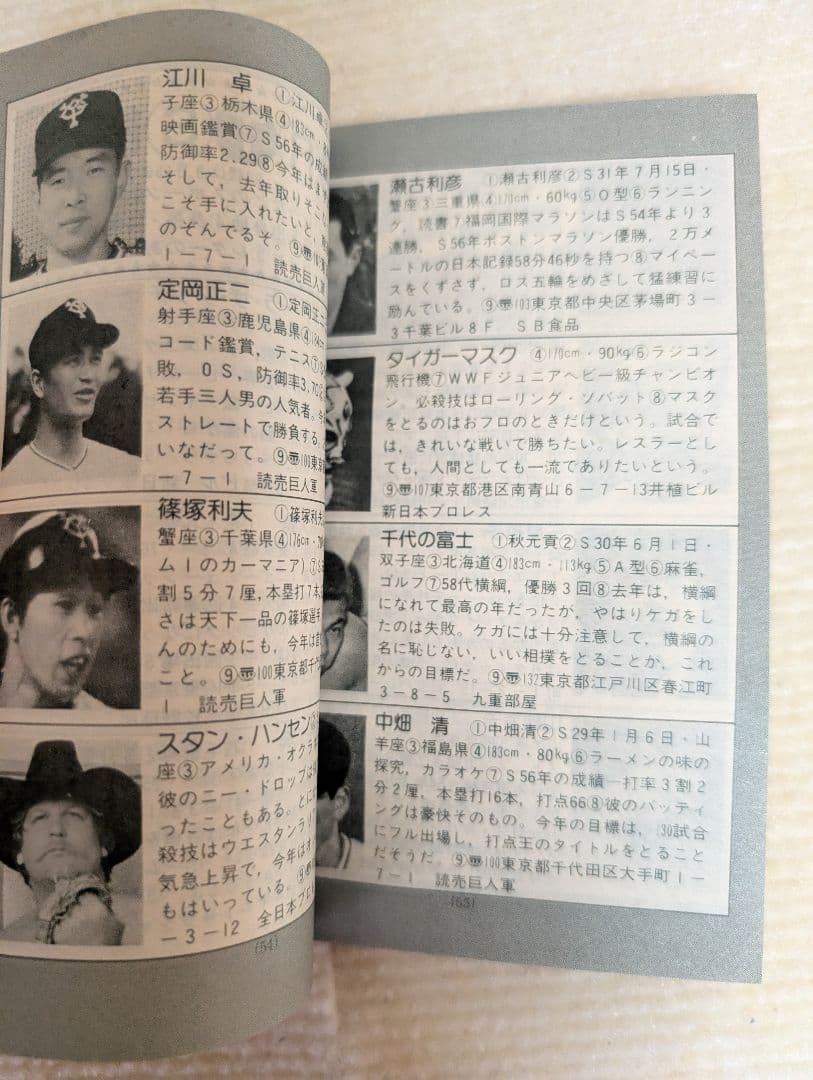 江川 卓 ①江川卓
子座③栃木県④183cm・
映画鑑賞⑦S56年の成績
防御率2.29⑧今年はま
そして，去年取りそこな
こそ手に入れたいと，
のぞんでるぞ。⑨〠102東
1－7－1 読売巨人軍
定岡正二 ①定岡正二
射手座③鹿児島県④184cm
コード鑑賞，テニス⑦
敗，0S，防御率3.70
若手三人男の人気者。今
ストレートで勝負する
いなだって。⑨〠100東京
－7－1 読売巨人軍
篠塚利夫 ①篠塚利夫
蟹座③千葉県④176cm・
ム1のカーマニア)⑦S
割5分7厘，本塁打7本
さは天下一品の篠塚選手
んのためにも，今年は首
こと。⑨〠100東京都千代
1 読売巨人軍
スタン・ハンセン
座③アメリカ・オクラホ
彼のニー・ドロップは
ったこともある。とに
殺技はウエスタンラリ
気急上昇で，今年は
もはいっている。⑨
－3－12 全日本プロ
(54)
瀬古利彦 ①瀬古利彦②S31年7月15日・
蟹座③三重県④170cm・60kg⑤O型⑥ランニン
グ，読書⑦福岡国際マラソンはS54年より3
連勝，S56年ボストンマラソン優勝，2万メ
ートルの日本記録58分46秒を持つ⑧マイペー
スをくずさず，ロス五輪をめざして猛練習に
励んでいる。⑨〠103東京都中央区茅場町3－
3千葉ビル8F SB食品
タイガーマスク ④170cm・90kg⑥ラジコン
飛行機⑦WWFジュニアヘビー級チャンピオ
ン。必殺技はローリング・ソバット⑧マスク
をとるのはおフロのときだけという。試合で
は，きれいな戦いで勝ちたい。レスラーとし
ても，人間としても一流でありたいという。
⑨〠107東京都港区南青山6－7－13井植ビル
新日本プロレス
千代の富士 ①秋元貢②S30年6月1日・
双子座③北海道④183cm・113kg⑤A型⑥麻雀，
ゴルフ⑦58代横綱，優勝3回⑧去年は，横綱
になれて最高の年だったが，やはりケガをし
たのは失敗。ケガには十分注意して，横綱の
名に恥じない，いい相撲をとることが，これ
からの目標だ。⑨〠132東京都江戸川区春江町
3－8－5 九重部屋
中畑 清 ①中畑清②S29年1月6日・山
羊座③福島県④183cm・80kg⑥ラーメンの味の
探究，カラオケ⑦S56年の成績―打率3割2
分2厘，本塁打16本，打点66⑧彼のバッティ
ングは豪快そのもの。今年の目標は，130試合
にフル出場し，打点王のタイトルをとること
だそうだ。⑨〠100東京都千代田区大手町1－
7－1 読売巨人軍
(55)